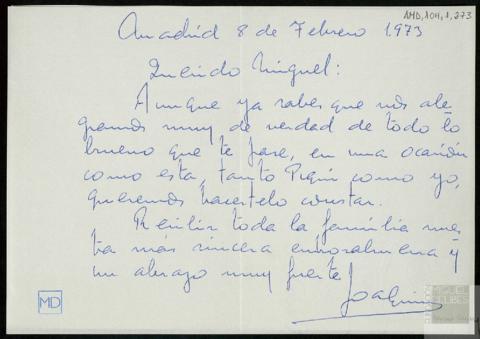 AMD,104,1,273
Madrid 8 de Febrero 1973
Querido Miguel:
Aunque ya sabes que nos ale-
gramos muy de verdad de todo lo
bueno que te pase, en una ocasión
como esta, tanto Piqui como yo,
queremos hacertelo constar.
Recibir toda la familia nues-
tra más sincera enhorabuena y
un abrazo muy fuerte
Joaquin
MD
MIGUEL
DELIBES